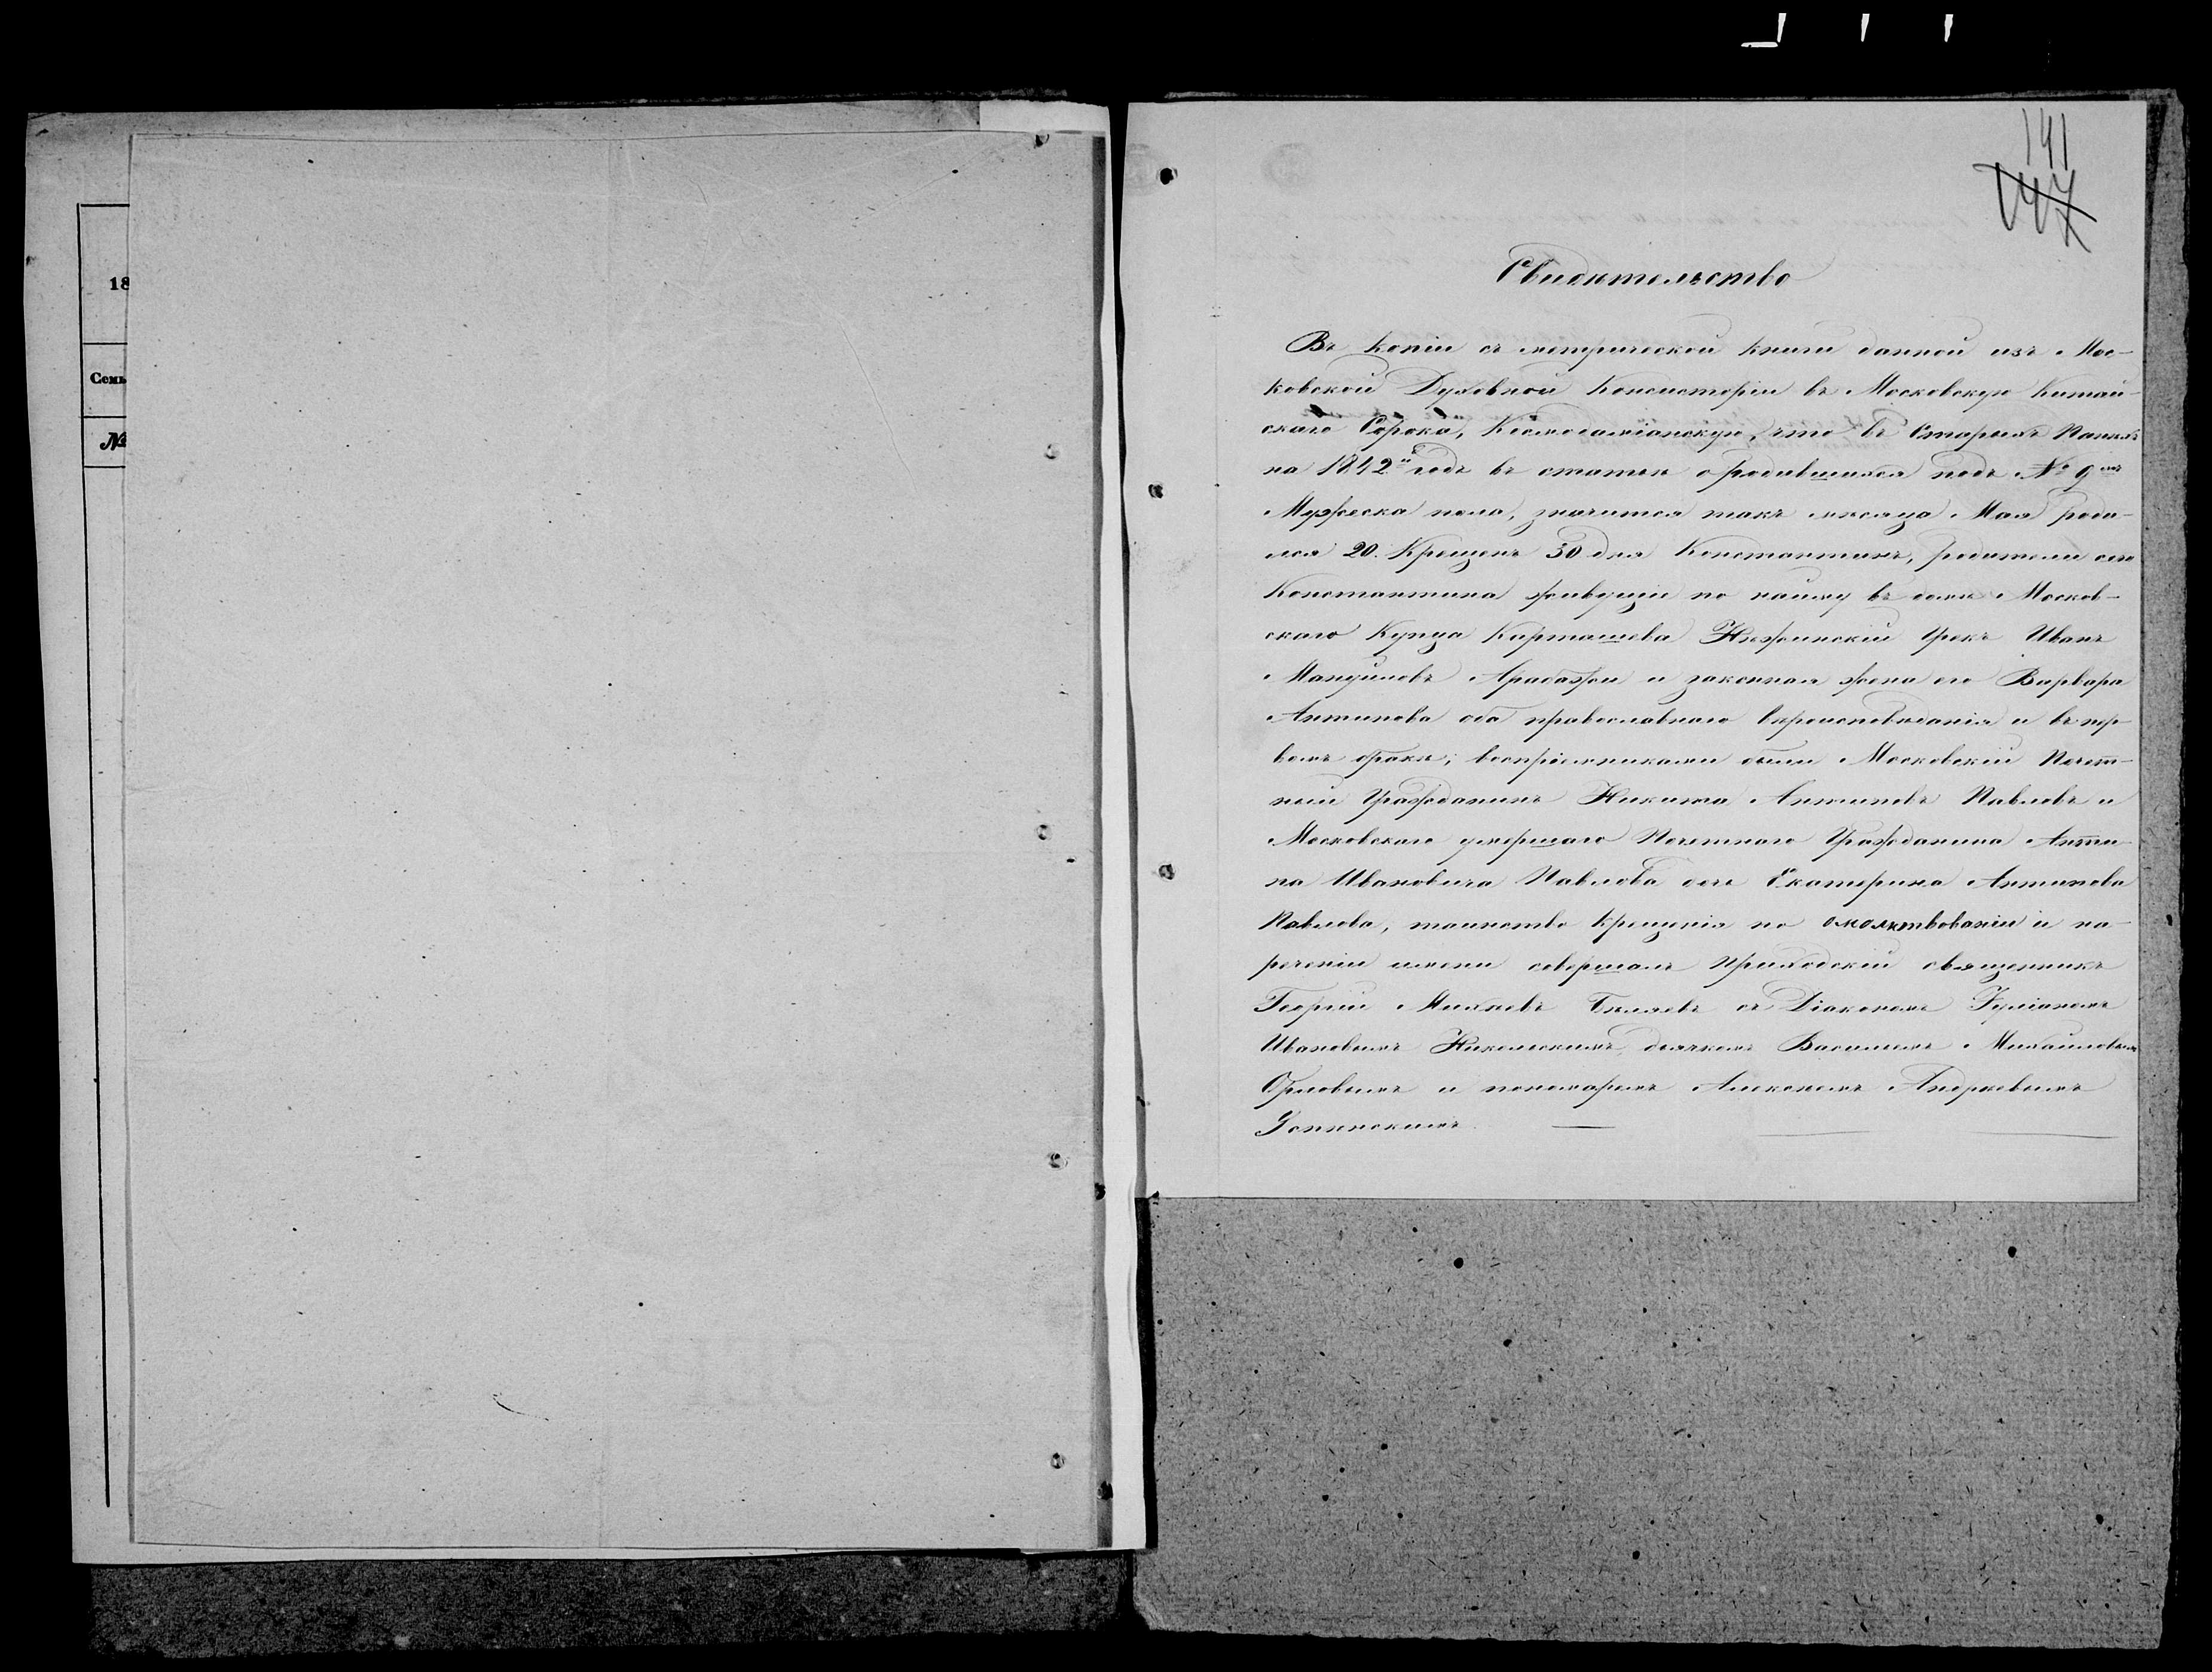 18
Семь
№
141
147
Свидѣтельство
Въ копіи съ метрической книги данной изъ Мос-
ковской Духовной Консисторіи въ Московскую Китай-
скаго Сорока, Космодаміанскую, что въ Старыхъ Панѣхъ
на 1842й годъ въ статьѣ о родившихся подъ № 9мъ
Мужеска пола, значится такъ мѣсяца Мая роди-
лся 20. Крещенъ 30 дня Константинъ, родители его
Константина живущіи по найму въ домѣ Москов-
скаго Купца Карташева Нѣжинскій Грекъ Иванъ
Мануйловъ и законная жена его Варвара
Антипова оба православнаго вѣроисповѣданія и въ пер-
вомъ бракѣ; воспріемниками были Московскій Почет-
ный Гражданинъ Никита Антиповъ Павловъ и
Московскаго умершаго Почетнаго Гражданина Анти-
па Ивановича Павлова дочь Екатерина Антипова
Павлова, таинство крещенія по омолитвованіи и на-
реченіи имени совершалъ Приходскій священникъ
Георгій Бѣляевъ съ Діакономъ Іуліаномъ
Ивановымъ Никольскимъ, дьячкомъ Василіемъ Михайловымъ
Орловымъ и пономаремъ Алексѣемъ Андреевымъ
Успенскимъ.